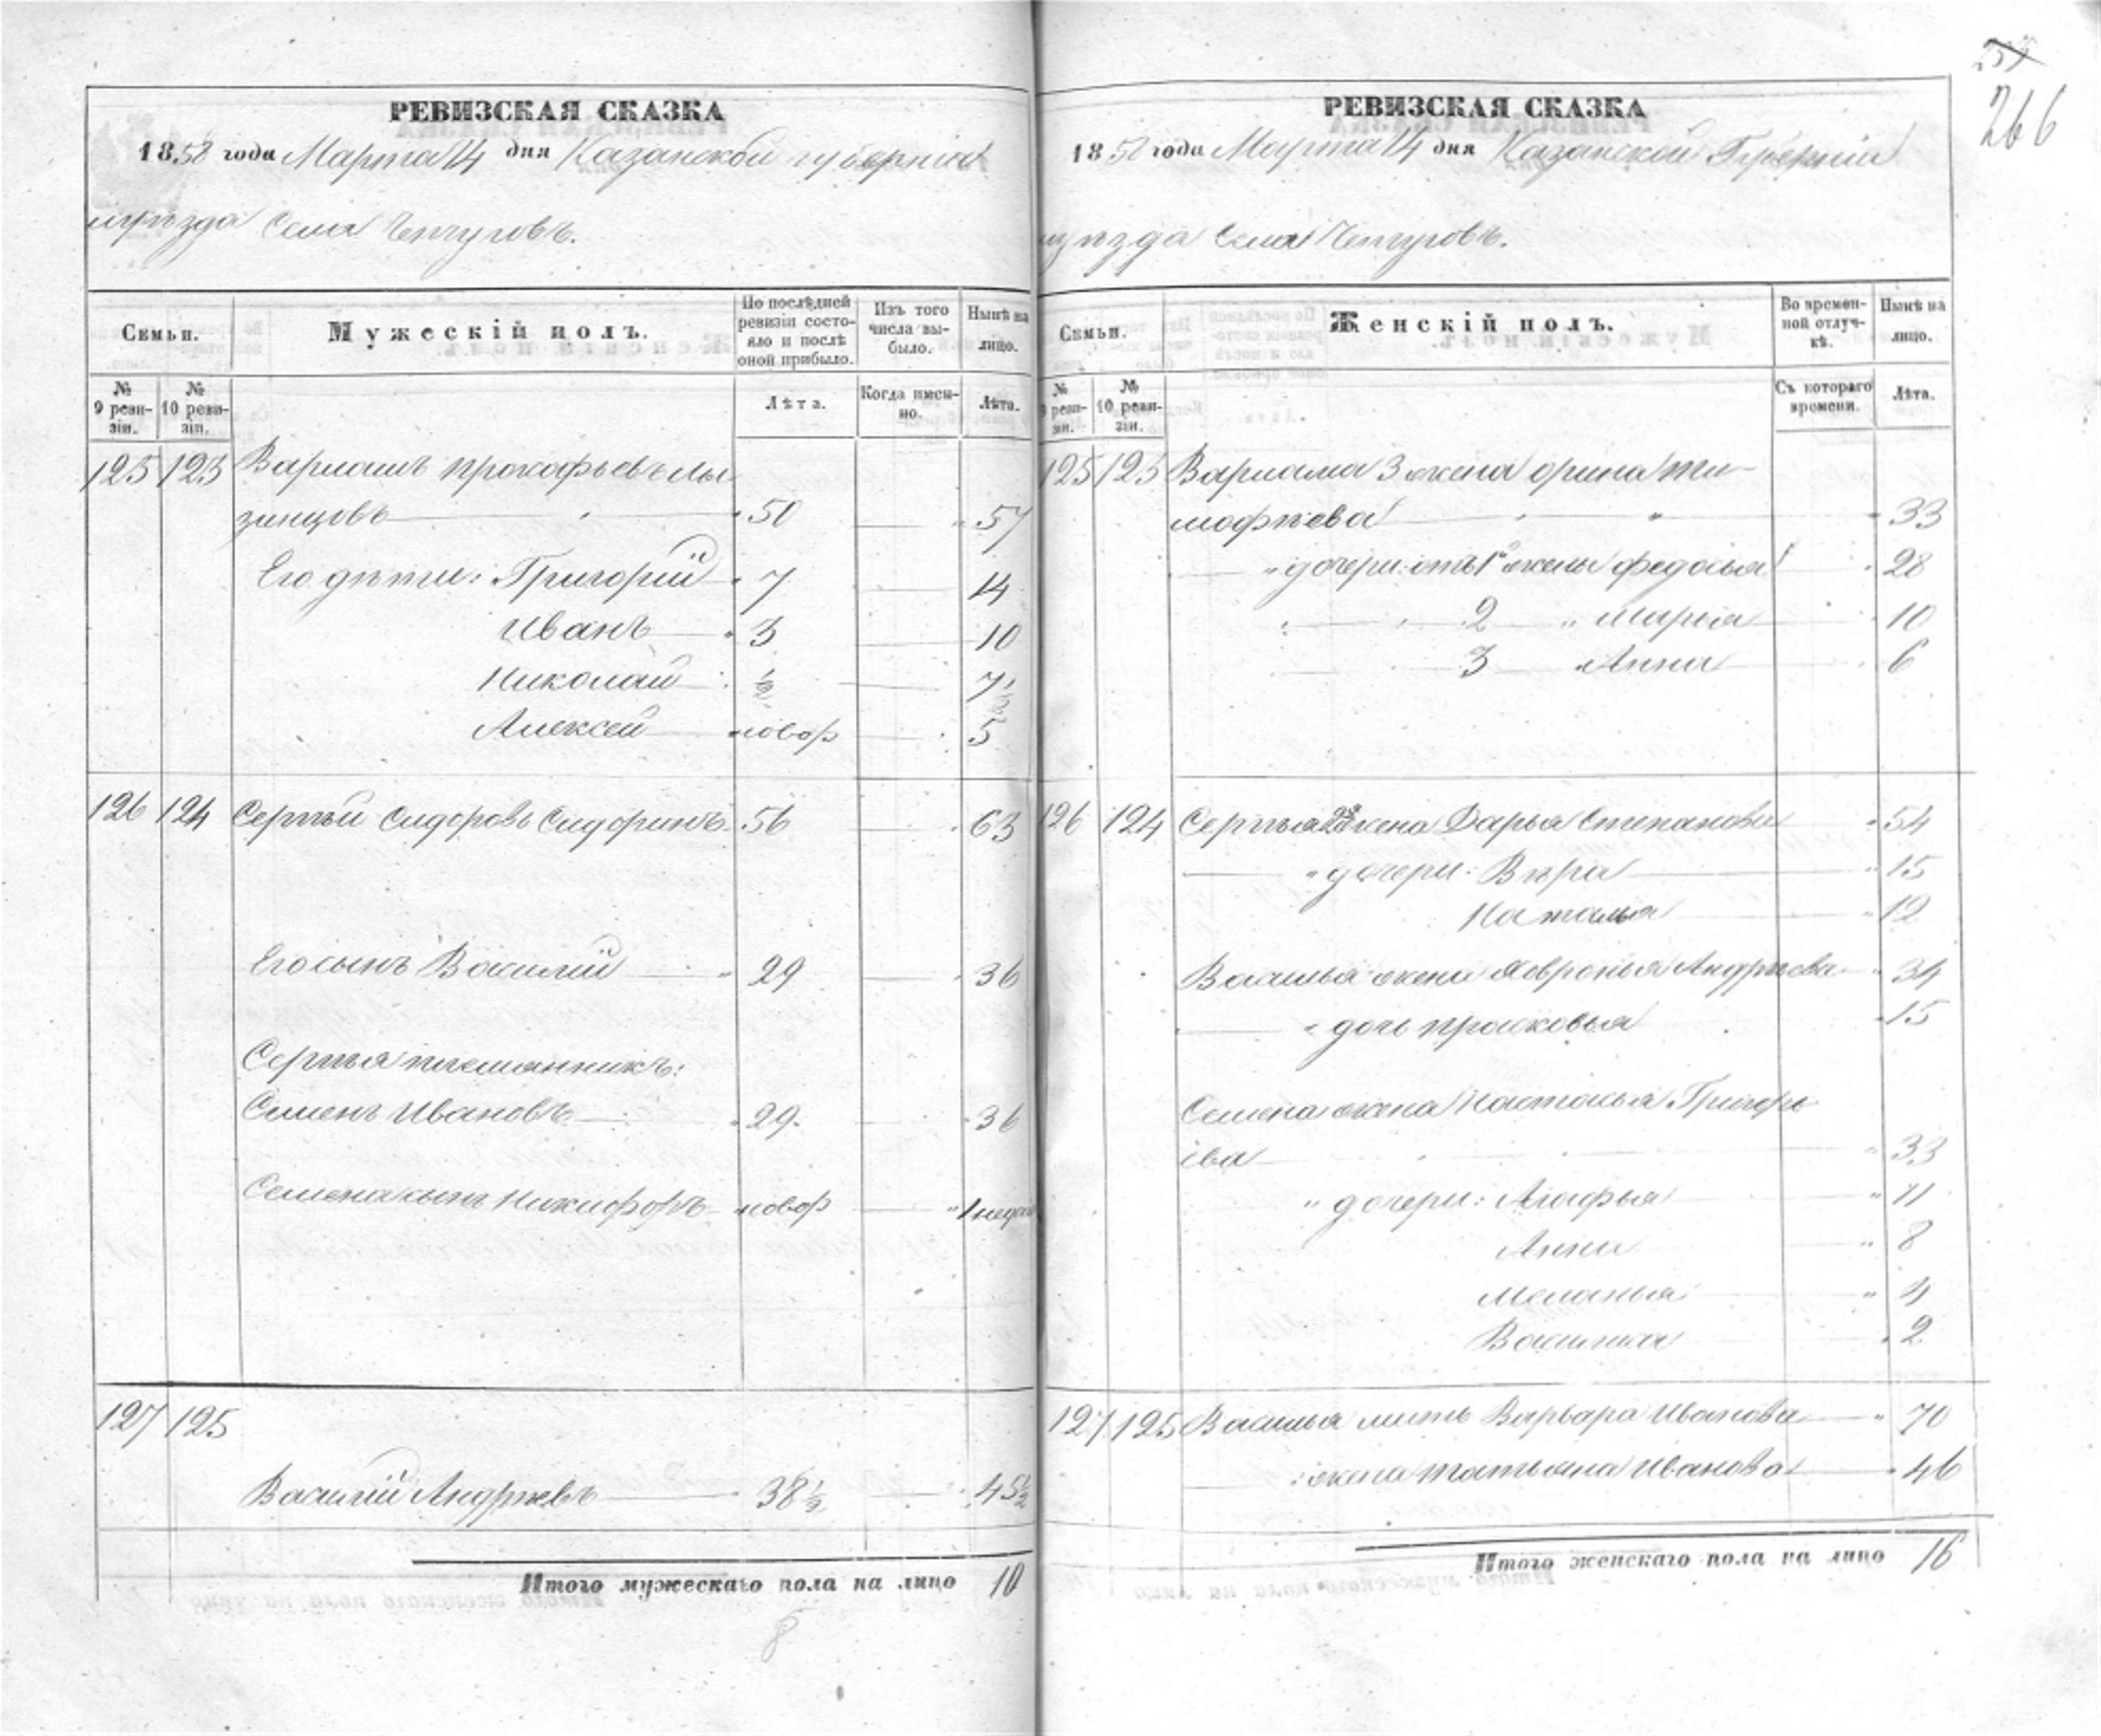 266
РЕВИЗСКАЯ СКАЗКА
1858 года Марта 14 дня Казанской губерніи
уѣзда Села
Семьи.
Мужескій полъ.
По послѣдней ревизіи состояло и послѣ оной прибыло.
Изъ того числа выбыло.
Нынѣ на лицо.
№ 9 ревизіи.
№ 10 ревизіи.
Лѣта.
Когда именно.
Лѣта.
125 123 Варламъ Прокофьевъ Лы-
зинцовъ 50 57
Его дѣти: Григорій 7 14
Иванъ 3 10
Николай ½ 7½
Алексей новор 5
126 124 Сергѣй Сидоровъ Сидоринъ 56 63
Его сынъ Василій 29 36
Сергѣя племянникъ:
Семенъ Ивановъ 29 36
Семена сынъ Никифоръ новор 1 недѣл
127 125
Василій Андрѣевъ 38½ 45½
Итого мужескаго пола на лицо 10
8
РЕВИЗСКАЯ СКАЗКА
1858 года Марта 14 дня Казанской Губерніи
уѣзда Села
Семьи.
Женскій полъ.
Во временной отлучкѣ.
Нынѣ на лицо.
№ 9 ревизіи.
№ 10 ревизіи.
Съ котораго времени.
Лѣта.
125 123 Варлама 3 жена Орина Ти-
мофѣева 33
" дочери: отъ 1й жены Федосья 28
2 " Марья 10
3 Анна 6
126 124 Сергѣя 2я жена Дарья Степанова 54
" дочери: Вѣра 15
Наталья 12
Василья жена Явронья Андрѣева 34
" дочь Прасковья 15
Семена жена Настасья Григорь
ева 33
" дочери: Агафья 11
Анна 8
Меланья 4
Василиса 2
127 125 Василья мать Варвара Иванова 70
жена Татьяна Иванова 46
Итого женскаго пола на лицо 16